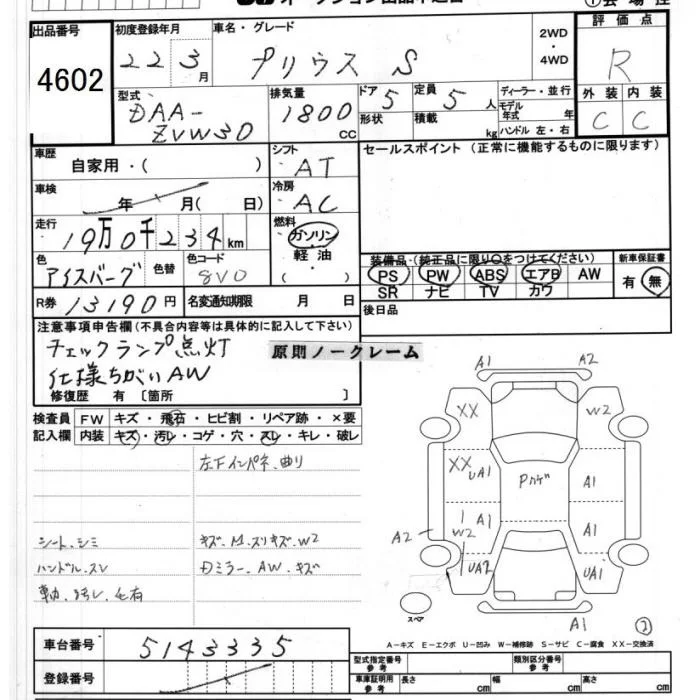 出品番号
4602
初度登録年月
22 3月
車名・グレード
プリウス S
2WD
・
4WD
評価点
R
外装 内装
C C
型式
DAA-
ZVW30
排気量
1800 CC
ドア 5
形状
定員 5 人
積載 kg
ディーラー・並行
モデル年式 年
ハンドル 左・右
車歴
自家用・( )
シフト
AT
セールスポイント (正常に機能するものに限ります)
車検
年 月( 日)
冷房
AC
走行
19万0千234km
燃料
ガソリン
軽油
( )
色
アイスバーグ
色替
色コード
8V0
R券 13190円
名変通知期限 月 日
装備品・(純正品に限り○をつけてください)
PS PW ABS エアB AW
SR ナビ TV カワ
新車保証書
有 無
後日品
注意事項申告欄(不具合内容等は具体的に記入して下さい)
チェックランプ点灯
仕様ちがいAW
原則ノークレーム
修復歴 有 〔箇所 〕
検査員
記入欄
FW キズ・飛石・ヒビ割・リペア跡・×要
内装 キズ・汚レ・コゲ・穴・スレ・キレ・破レ
左下インパネ、曲り
シート、シミ
キズ、M、スリキズ、W2
ハンドル、スレ
Dミラー、AW、キズ
A1
A2
XX
W2
XX
UA1
A1
A1
A1
A2
W2
UA2
UA1
スペア
A1
2
A-キズ E-エクボ U-凹み W-補修跡 S-サビ C-腐食 XX-交換済
車台番号
5143335
登録番号
型式指定番号
参考
類別区分番号
参考
車庫証明用
参考
長さ cm
幅 cm
高さ cm